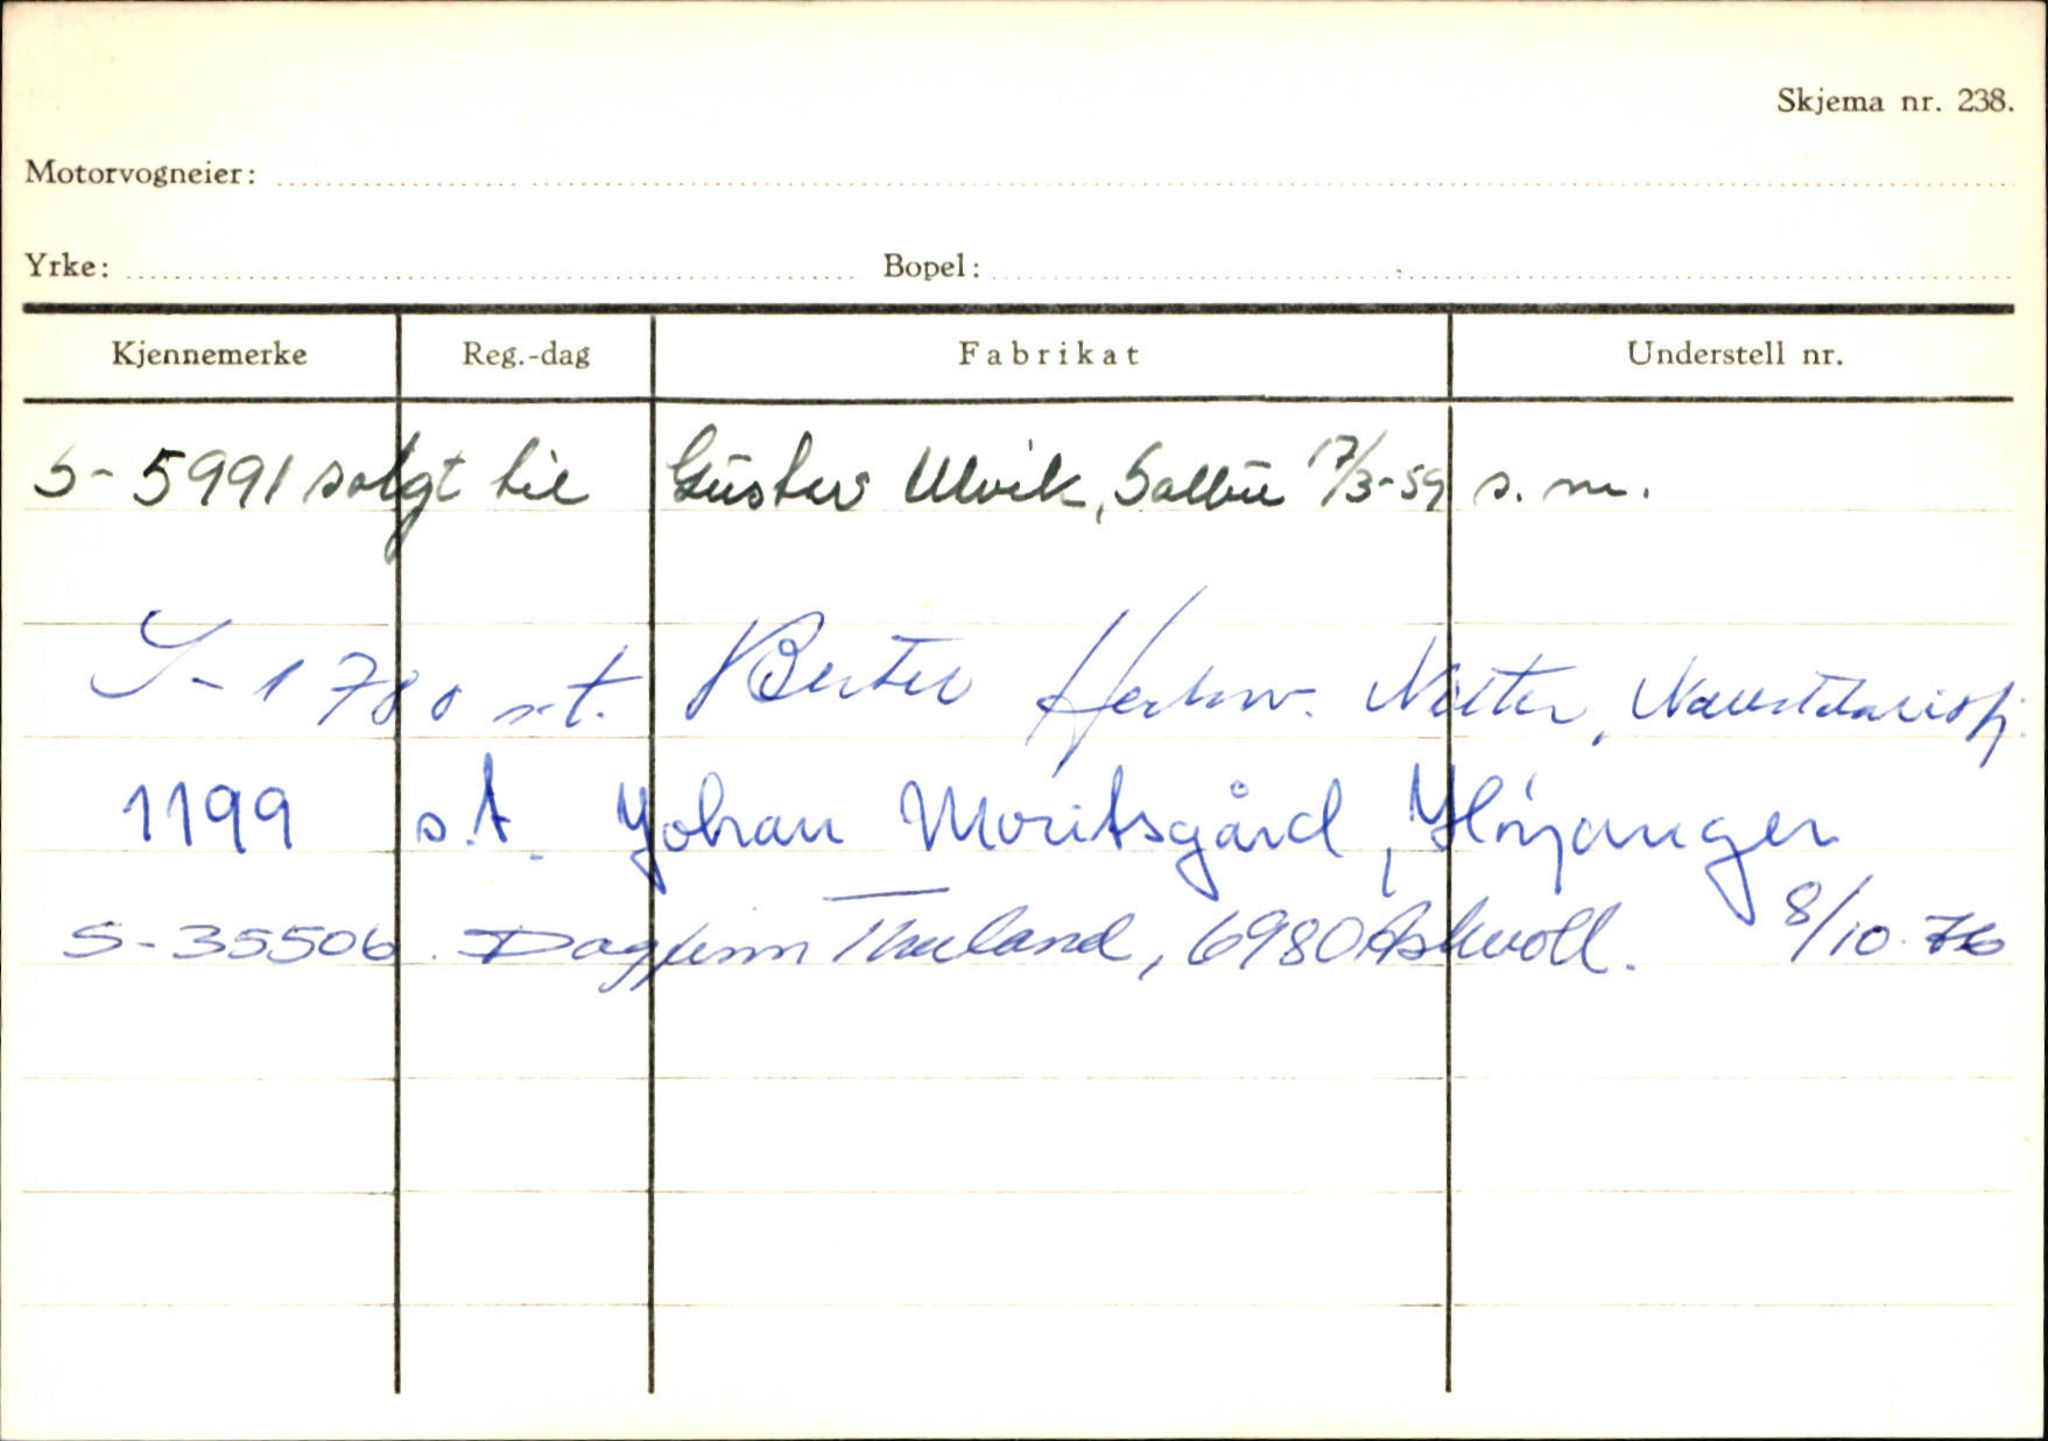 Skjema nr. 238.
Motorvogneier:
Yrke: Bopel:
Kjennemerke Reg.-dag Fabrikat Understell nr.
S-5991 solgt til Gustav Ulvik, Salbu 17/3-59 s.m.
S-1780 s.t. Bertel Nitter, Naustdal
1199 s.t. Johan Moritsgård, Høyanger
S-35506. Dagfinn Thuland, 6980 Askvoll. 8/10-76